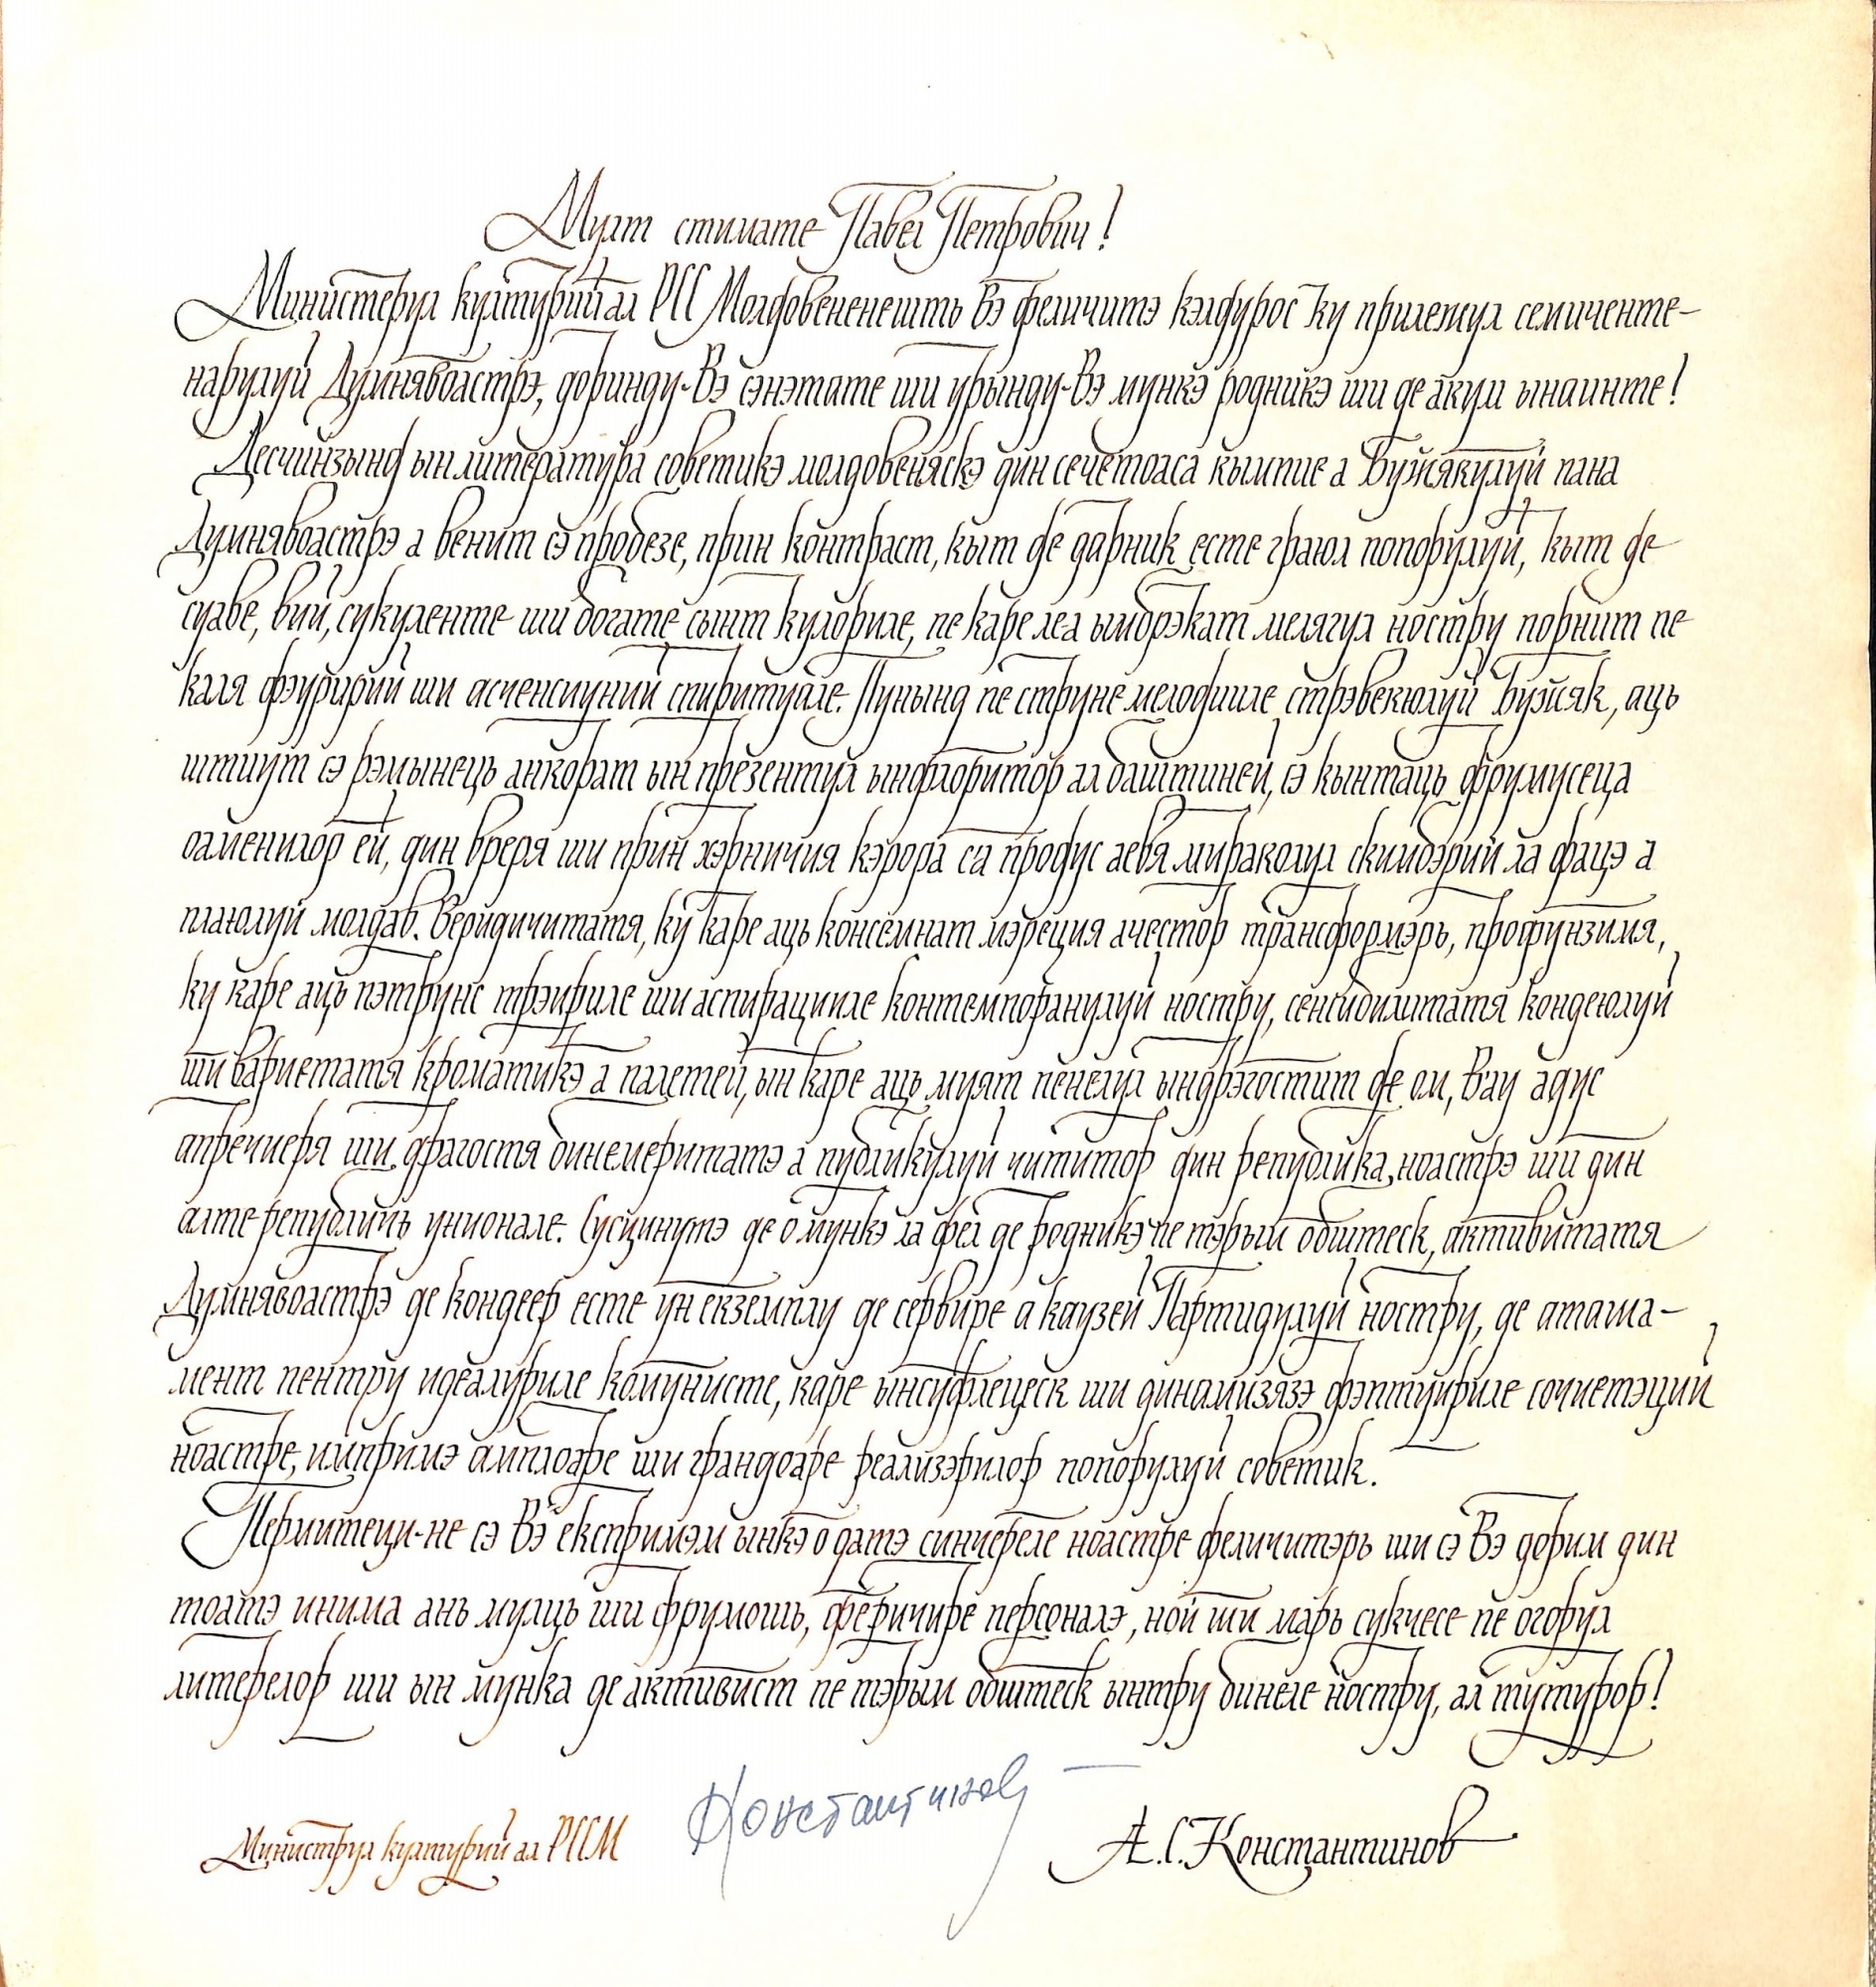 Мулт стимате Павел Петрович!
Министерул културий ал РСС Молдовененешть Вэ феличитэ кэлдурос ку прилежул семиченте-
нарулуй Думнявоастрэ, доринду-Вэ сэнэтате ши урынду-Вэ мункэ родникэ ши де акум ынаинте!
Десчинзынд ын литература советикэ молдовеняскэ дин сечетоаса кымпие а Буӂякулуй пана
Думнявоастрэ а венит сэ пробезе, прин контраст, кыт де дарник есте граюл попорулуй, кыт де
суаве, вий, сукуленте ши богате сынт кулориле, пе каре леа ымбрэкат мелягул ностру порнит пе
каля фэуририй ши асченсиуний спиритуале. Пунынд пе струне мелодииле стрэвекюлуй Буӂяк, аць
штиут сэ рэмынець анкорат ын презентул ынфлоритор ал баштиней, сэ кынтаць фрумусеца
оаменилор ей, дин вреря ши прин хэрничия кэрора са продус аевя мираколул скимбэрий ла фацэ а
плаюлуй молдав. Веридичитатя, ку каре аць консемнат мэреция ачестор трансформэрь, профунзимя,
ку каре аць пэтрунс трэириле ши аспирацииле контемпоранулуй ностру, сенсибилитатя кондеюлуй
ши вариетатя кроматикэ а палетей, ын каре аць муят пенелул ындрэгостит де ом, Вау адус
апречиеря ши драгостя бинемеритатэ а публикулуй чититор дин република ноастрэ ши дин
алте републичь унионале. Сусцинутэ де о мункэ ла фел де родникэ пе тэрым обштеск, активитатя
Думнявоастрэ де кондеер есте ун екземплу де сервире а каузей Партидулуй ностру, де аташа-
мент пентру идеалуриле комунисте, каре ынсуфлецеск ши динамизязэ фэптуириле сочиетэций
ноастре, импримэ амплоаре ши грандоаре реализэрилор попорулуй советик.
Пермитеци-не сэ Вэ експримэм ынкэ о датэ синчереле ноастре феличитэрь ши сэ Вэ дорим дин
тоатэ инима ань мулць ши фрумошь, феричире персоналэ, ной ши марь сукчесе пе огорул
литерелор ши ын мунка де активист пе тэрым обштеск ынтру бинеле ностру, ал тутурор!
Министрул културий ал РССМ Константинов А.С. Константинов